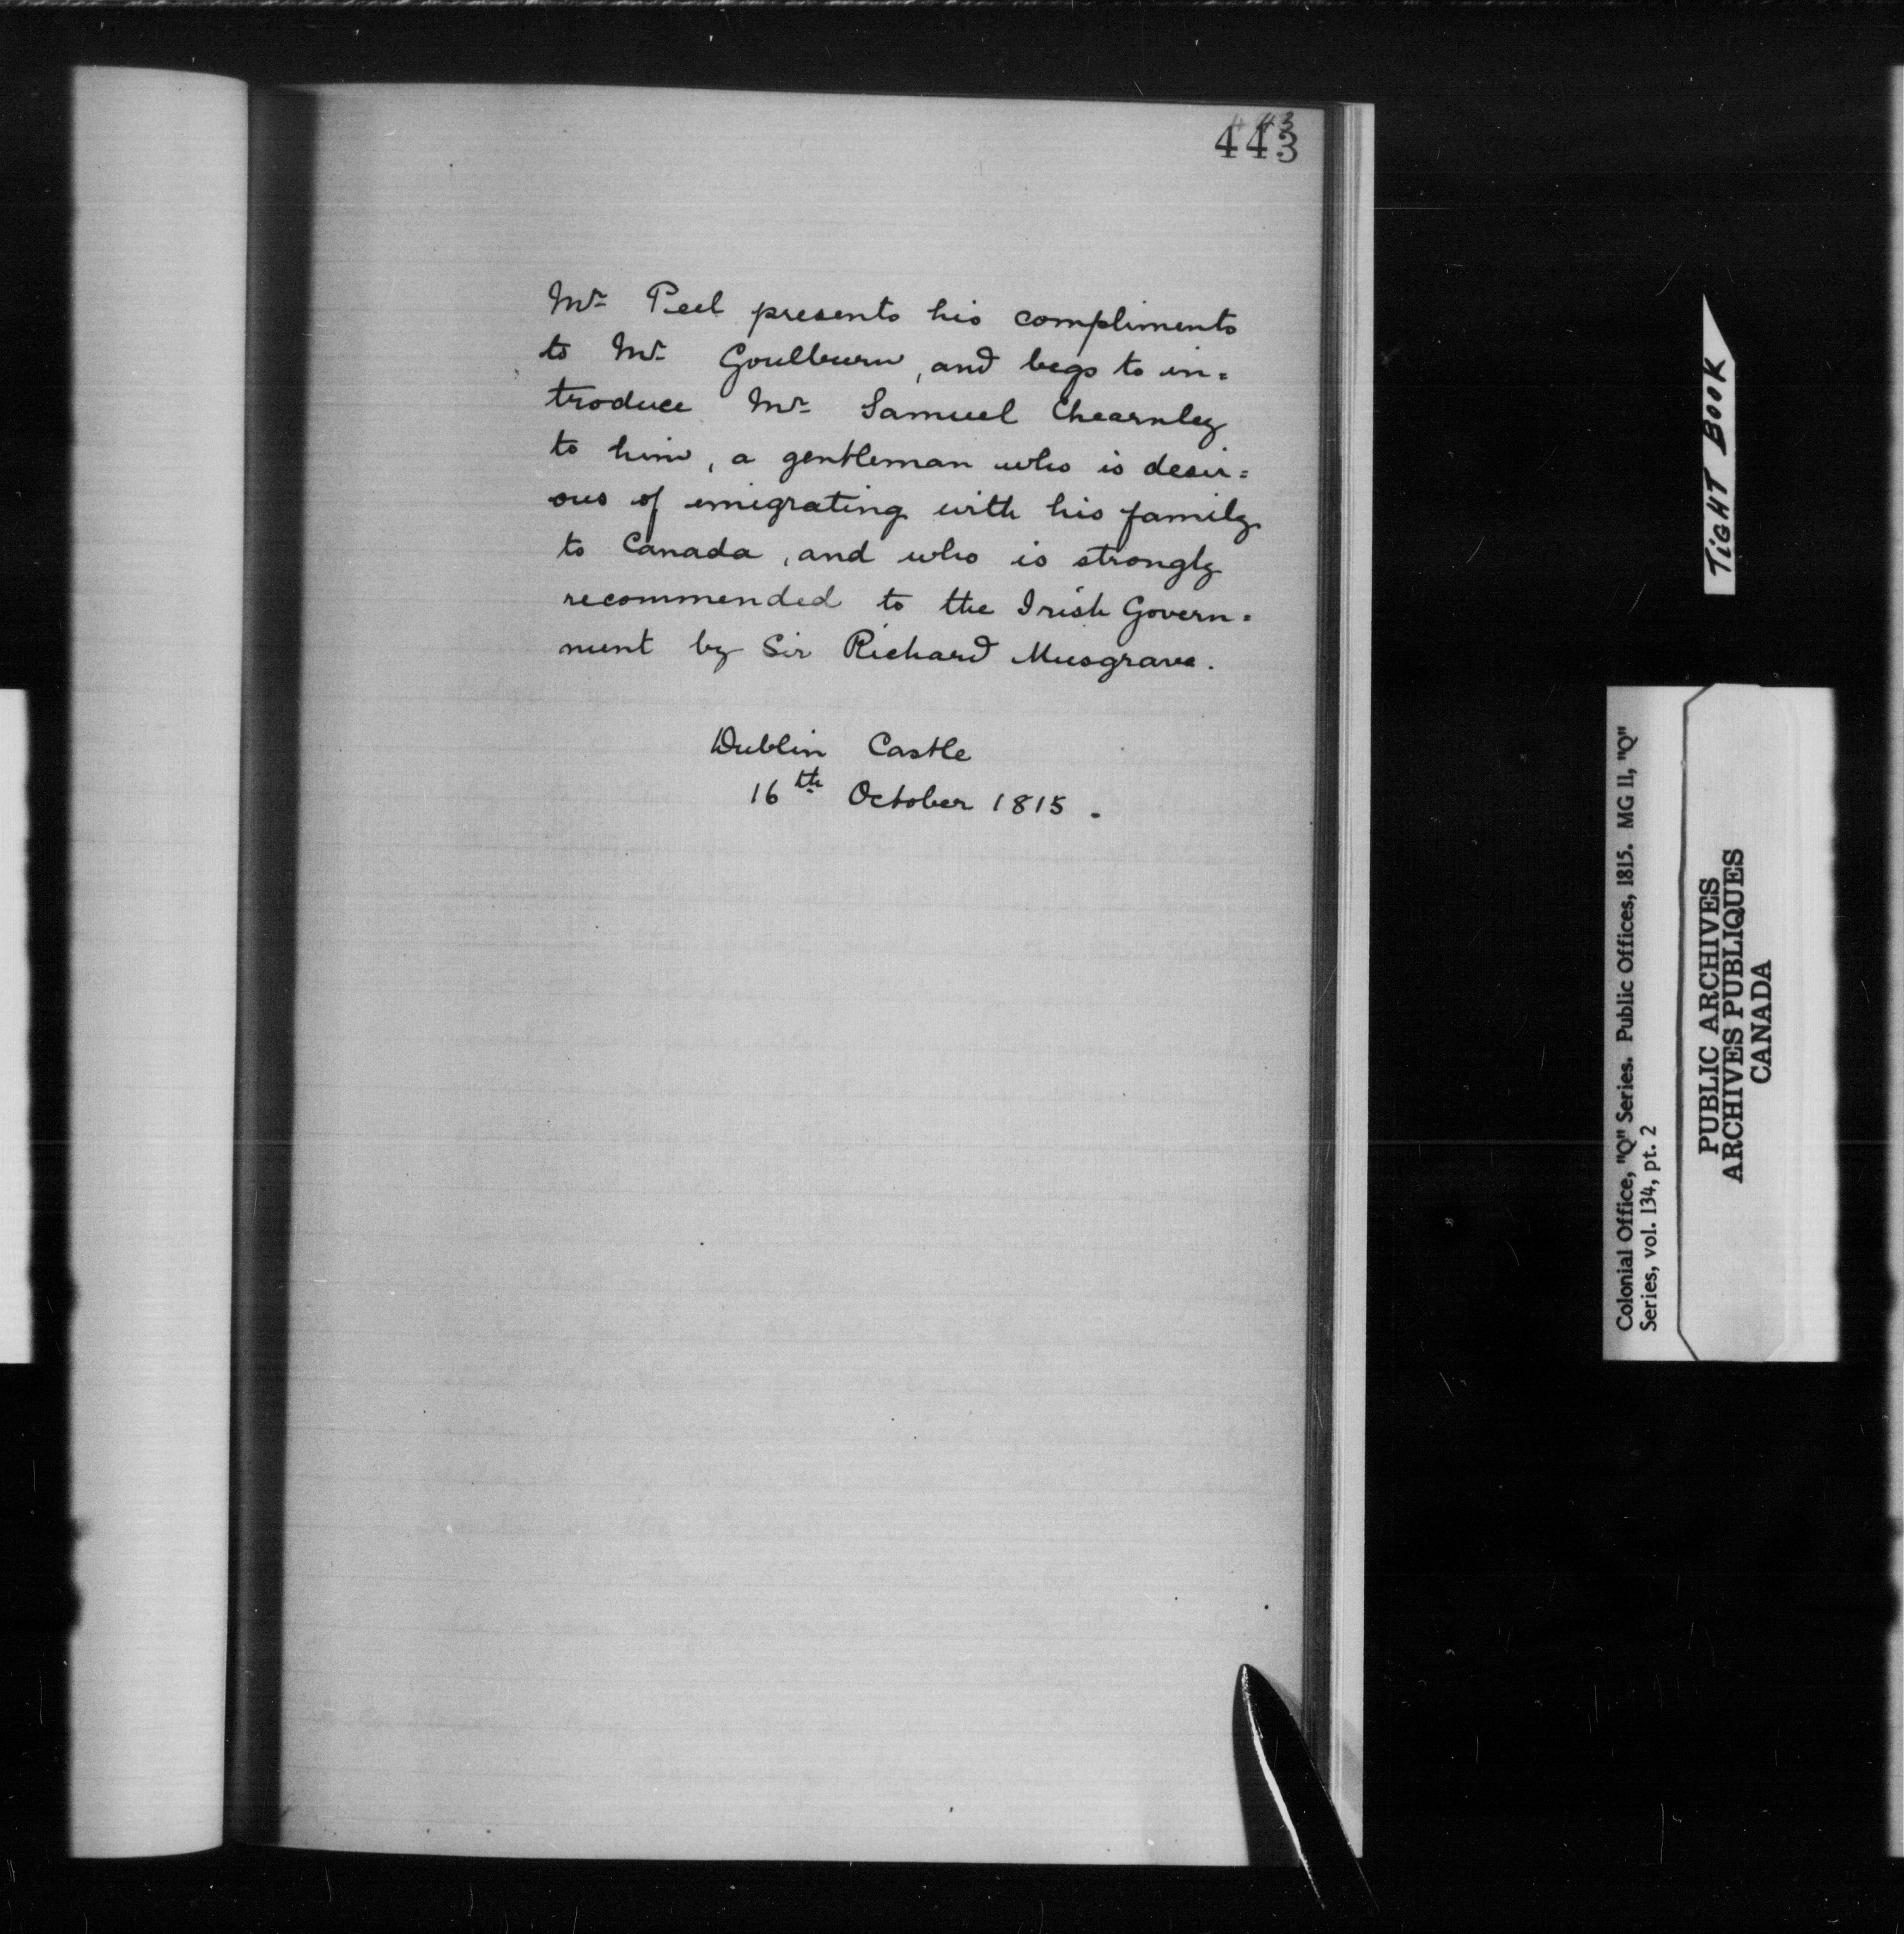 443
443
Mr Peel presents his compliments
to Mr Goulburn, and begs to in=
troduce Mr Samuel Chearnley
to him, a gentleman who is desir=
ous of emigrating with his family
to Canada, and who is strongly
recommended to the Irish Govern=
ment by Sir Richard Musgrave.
Dublin Castle
16th October 1815.
TIGHT BOOK
Colonial Office, "Q" Series. Public Offices, 1815. MG 11, "Q"
Series, vol. 134, pt. 2
PUBLIC ARCHIVES
ARCHIVES PUBLIQUES
CANADA